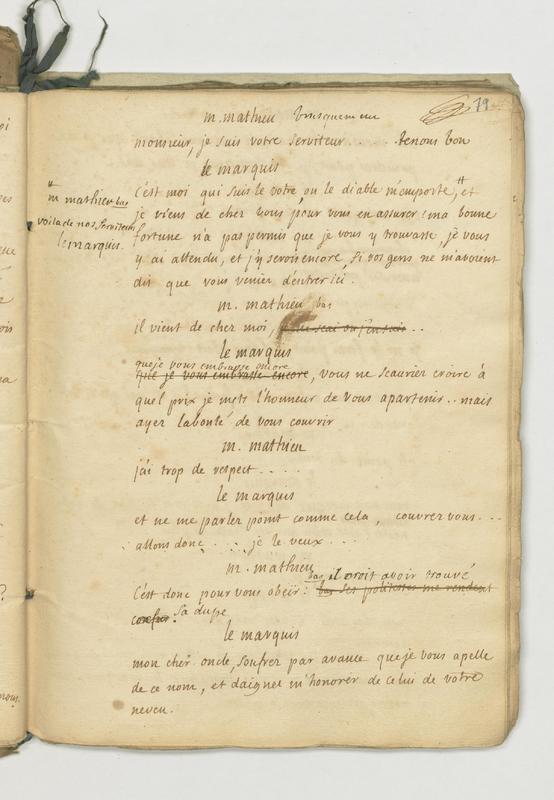 79
m. mathieu brusquement
monsieur, je suis votre serviteur . . . . tenons bon
le marquis
C'est moi qui suis le votre, ou le diable m'emporte, # et
# m mathieu bas
voila de nos serviteurs
le marquis.
je viens de chez vous pour vous en assurer: ma bonne
fortune n'a pas permis que je vous y trouvasse, je vous
y ai attendu, et j'y serois encore, si vos gens ne m'avoient
dit que vous veniez d'entrer ici.
m. mathieu bas
il vient de chez moi, je ne scai ou j'en suis . .
le marquis
que je vous embrasse encore
que je vous embrasse encore, vous ne scauriez croire à
quel prix je mets l'honneur de vous apartenir . . mais
ayez la bonté de vous couvrir
m. mathieu
j'ai trop de respect . . . .
le marquis
et ne me parlez point comme cela, couvrez vous . . .
allons donc . . . . je le veux . . .
m. mathieu
bas il croit avoir trouvé
C'est donc pour vous obeïr: bas ses politesses me rendent
confus. sa dupe
le marquis
mon cher oncle, soufrez par avance que je vous apelle
de ce nom, et daignez m'honorer de celui de votre
neveu.